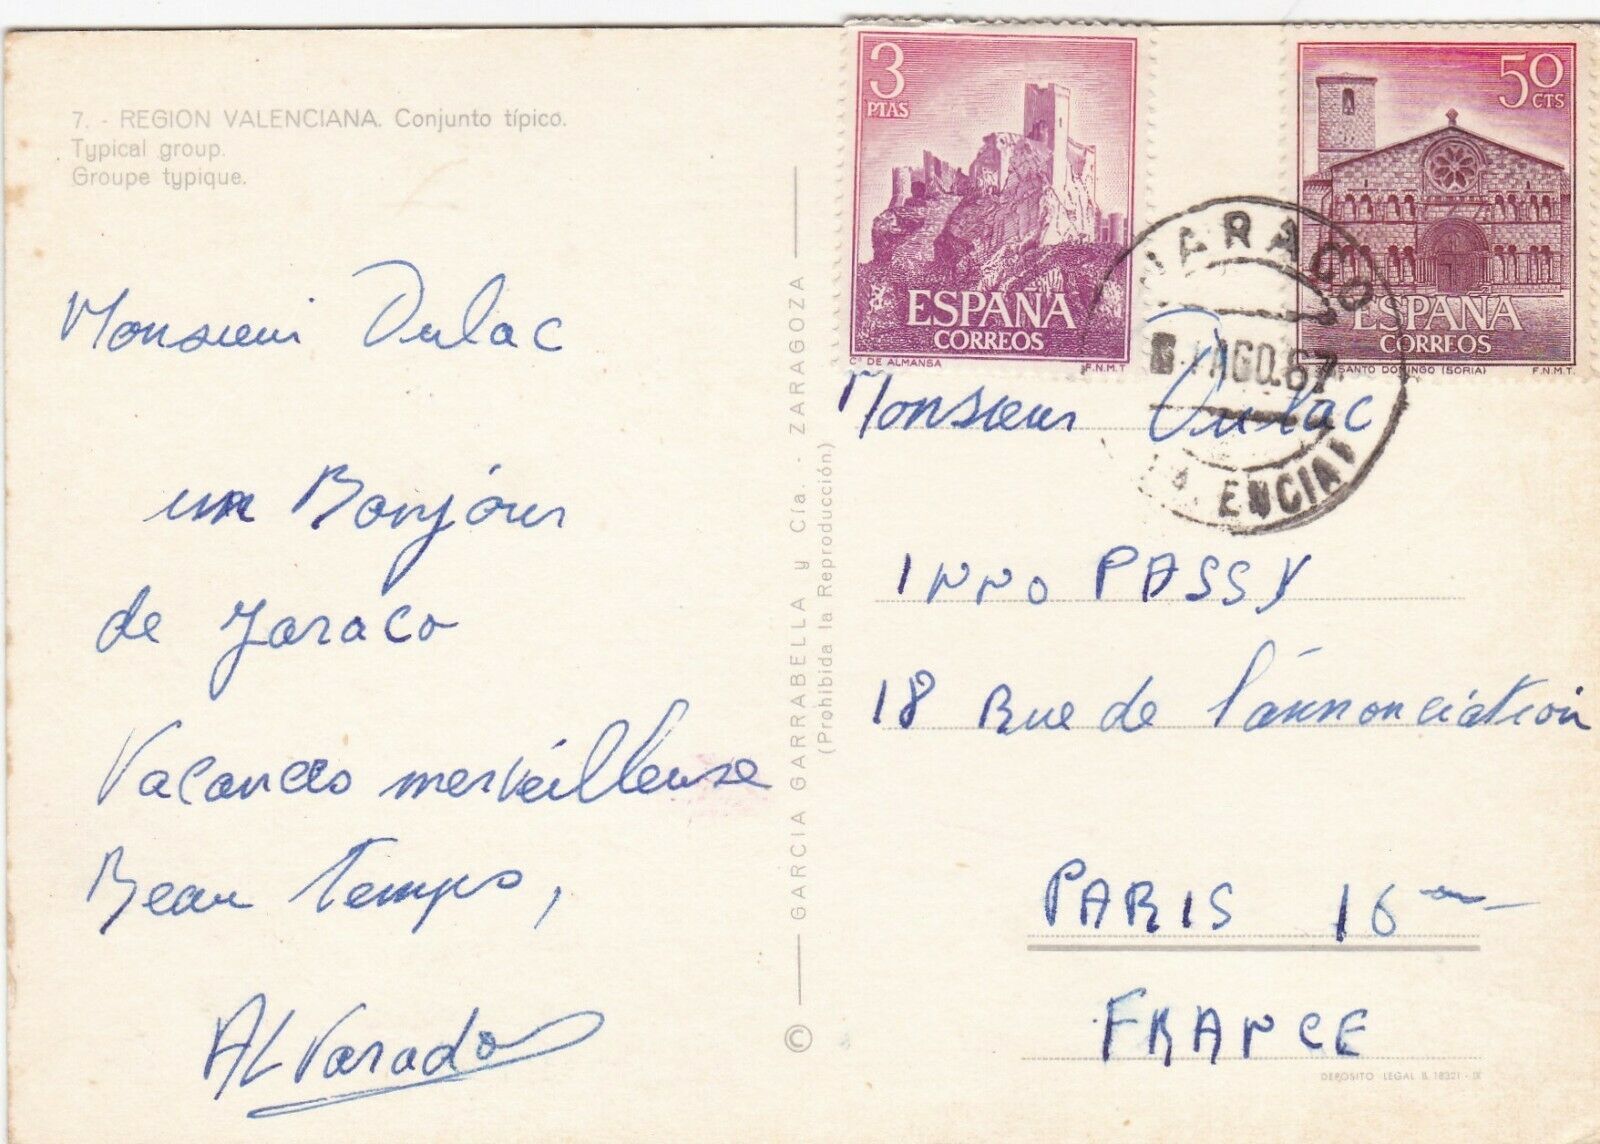 7. - REGION VALENCIANA. Conjunto típico.
Typical group.
Groupe typique.
Monsieur Dulac
un Bonjour
de Jaraco
Vacances merveilleuse
Beau Temps,
ALVarado
© GARCIA GARRABELLA y Cía. - ZARAGOZA
(Prohibida la Reproducción)
3
PTAS
ESPAÑA
CORREOS
Cº DE ALMANSA
F.N.M.T
50
CTS
ESPAÑA
CORREOS
SANTO DOMINGO (SORIA)
F.N.M.T.
JARACO
AGO.67
Monsieur Dulac
INNO PASSY
18 Rue de l'annonciation
PARIS 16
FRANCE
DEPOSITO LEGAL B. 18321 - IX